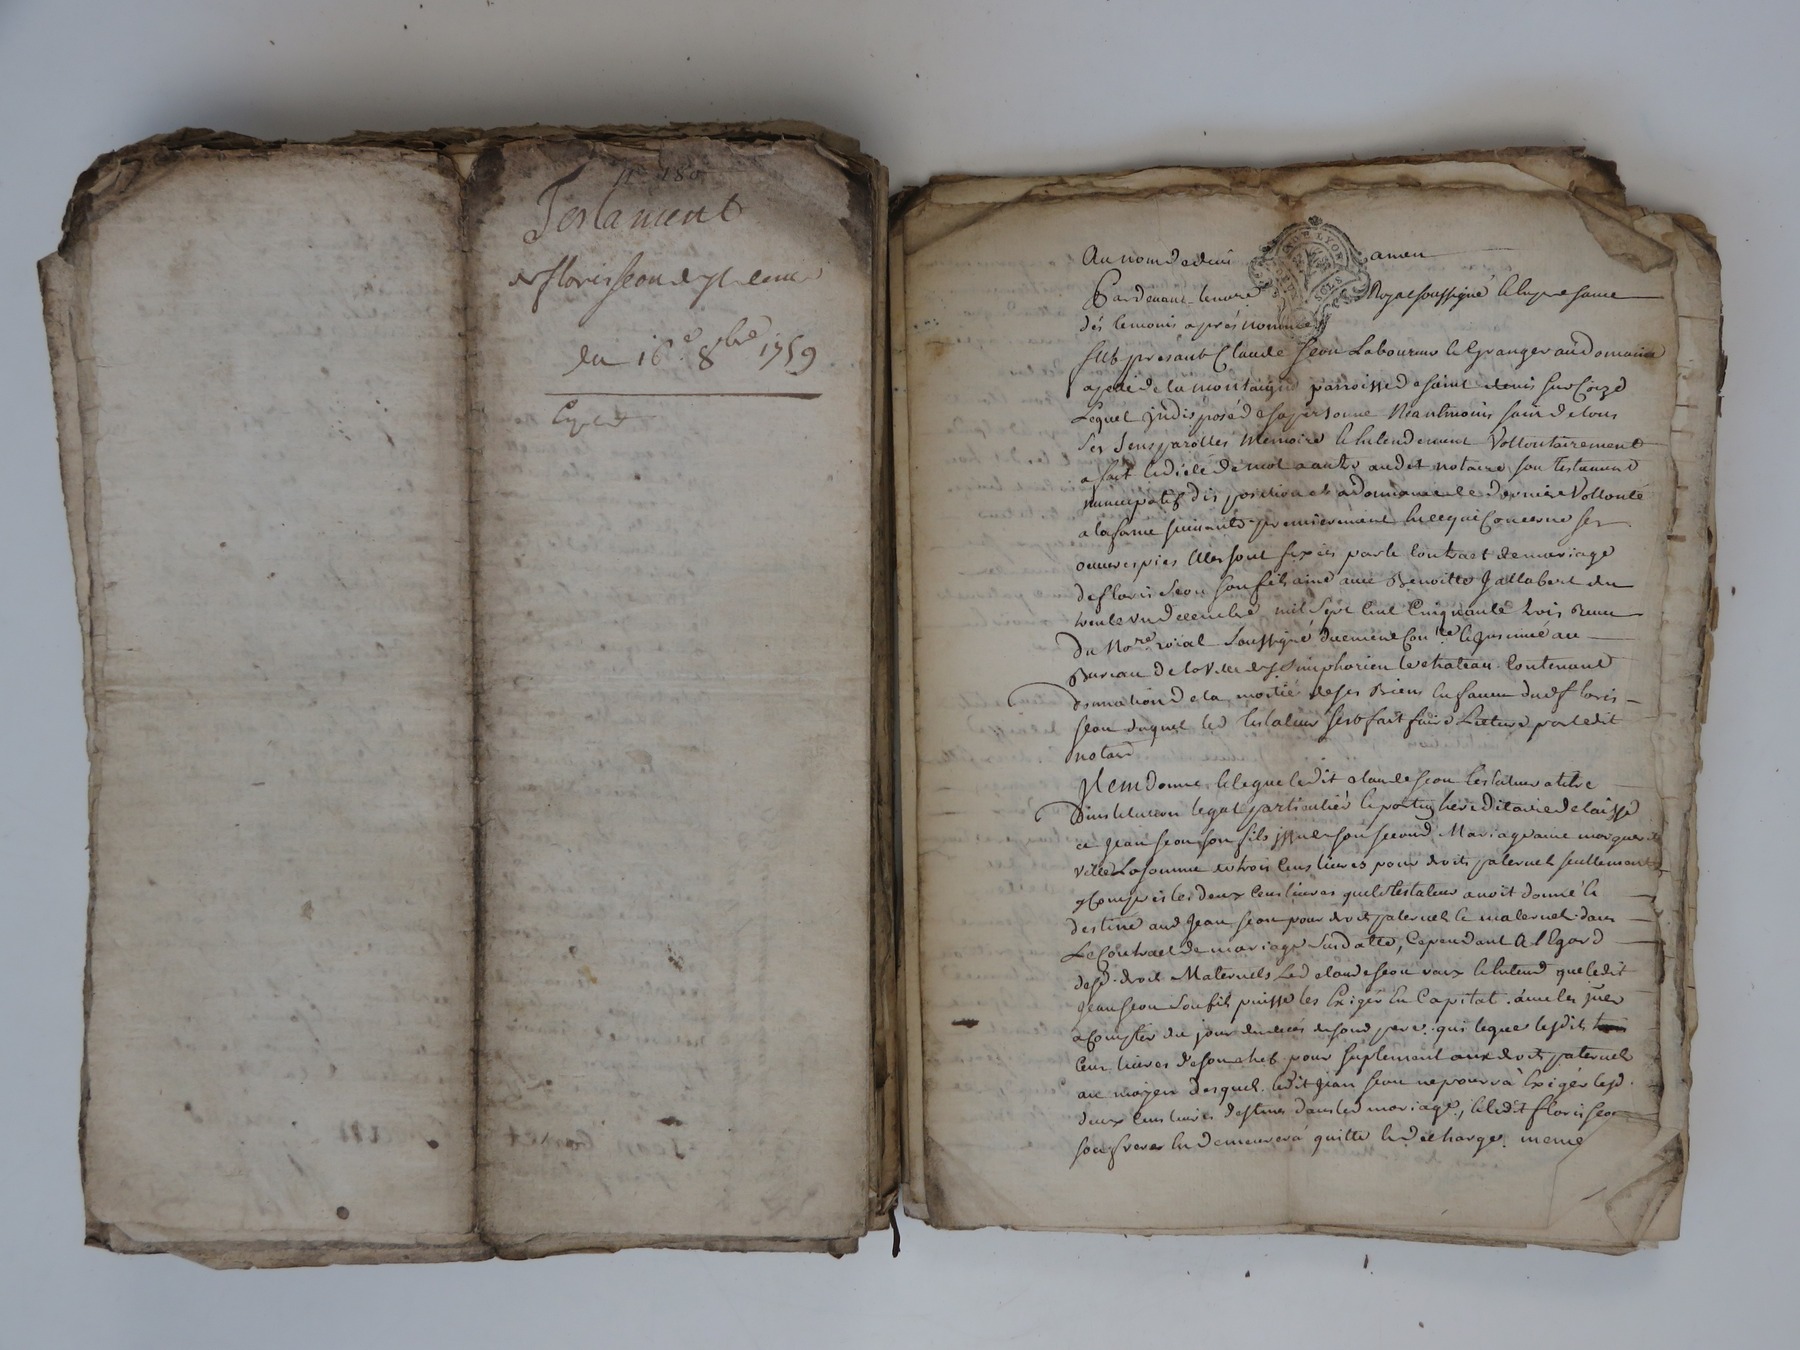 Testament
de floris seon de st denis
du 16e 8bre 1759
Expedié
Au nom de dieu amen
Pardevant le notre Royal soussigné & la presance
des temoins après nommés
fut présant Claude Seon Laboureur & Granger au Domaine
de la montaigne parroisse de saint denis sur Coize
Lequel jndisposé de sa personne Neantmoins sain de tous
ses sens parolles memoire & entendement Vollontairement
a fait & dicté de mot a autre audit notaire son testament
nuncupatif disposition et ordonnance de derniere Vollonté
a la forme suivante premierement en ce qui Concerne ses
oeuvres pies elles sont fixées par le Contract de mariage
de floris Seon son fils ainé avec Benoitte Jallabert du
trente un decembre mil sept cent Cinquante trois Reçu
du Nore roial soussigné duement Conlé & jnsinué au
Bureau de la Ville de st Simphorien le chateau Contenant
donnation de la moitié de ses Biens en faveur dud floris
seon duquel led testateur s'est fait faire Lecture par ledit
notaire
Jtem donne & legue ledit claude seon testateur a titre
D'institution legat particulier & portion hereditaire delaisse
a Jean seon son fils jssu de son second Mariage avec marguerite
ville La somme de trois Cens livres pour droits paternel seullement
y Compris les deux Cens livres que le testateur avoit donné &
destiné aud Jean seon pour droits paternel & maternel dans
Le Contract de mariage susdatté, Cependant a l'Egard
desd. droit Maternels Led claude seon veux & entend que ledit
Jean seon son fils puisse les Exiger En Capital avec les
a Compter du jour du decés de son pere qui legue lesdits
Cens livres de son chef pour suplement aux droits paternels
au moyen desquels ledit Jean seon ne pourra Exiger lesd.
deux Cens livres destinés dans led mariage, & ledit floris seon
son frere en demeurera quitte & decharge meme